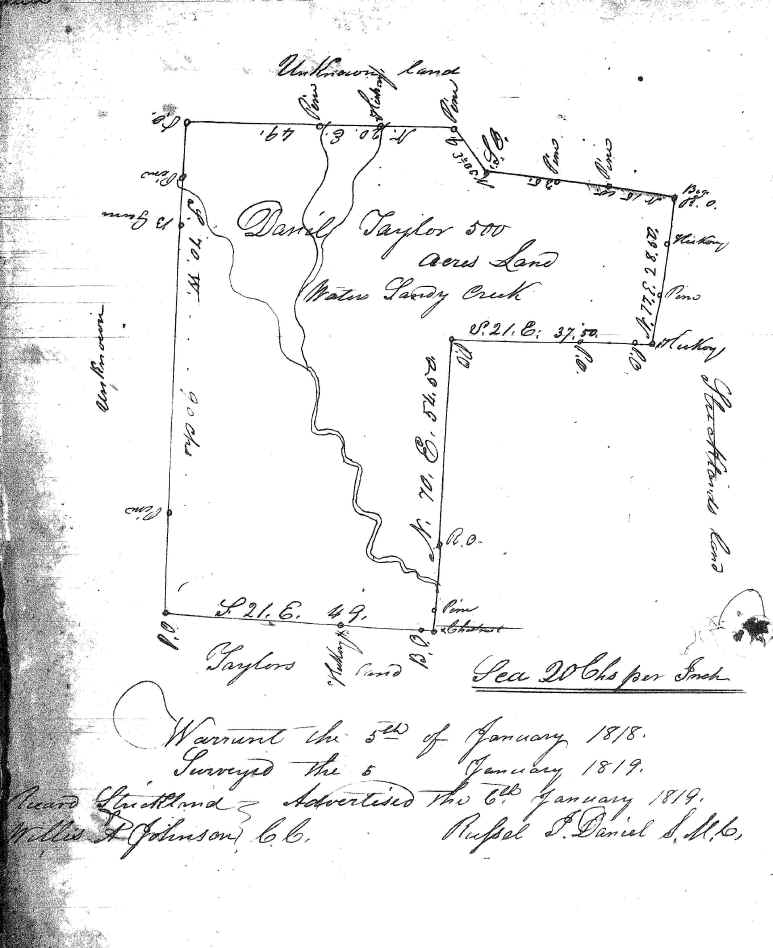 Unknown land
Pine
Hickory
Pine
P.O.
49.
N. 20. E.
S.O.
Pine
Pine
Beg.
Pine
B Gum
Daniel Taylor 500
acres Land
Waters Sandy Creek
Hickory
Pine
Hickory
S. 70. W. 90 chs
Unknown
S. 21. E. 37.50
P.O.
P.O.
P.O.
N. 70. E. 54.50
Stricklands land
Pine
R.O.
Pine
Chestnut
S. 21. E. 49.
P.O
Hickory
B.O
Taylors land
Sca 20 Chs per Inch
Warrant the 5th of January 1818.
Surveyed the 5 January 1819.
Strickland Advertised the 6th January 1819.
Willis A Johnson C.C.
Russel J. Daniel S.M.C.